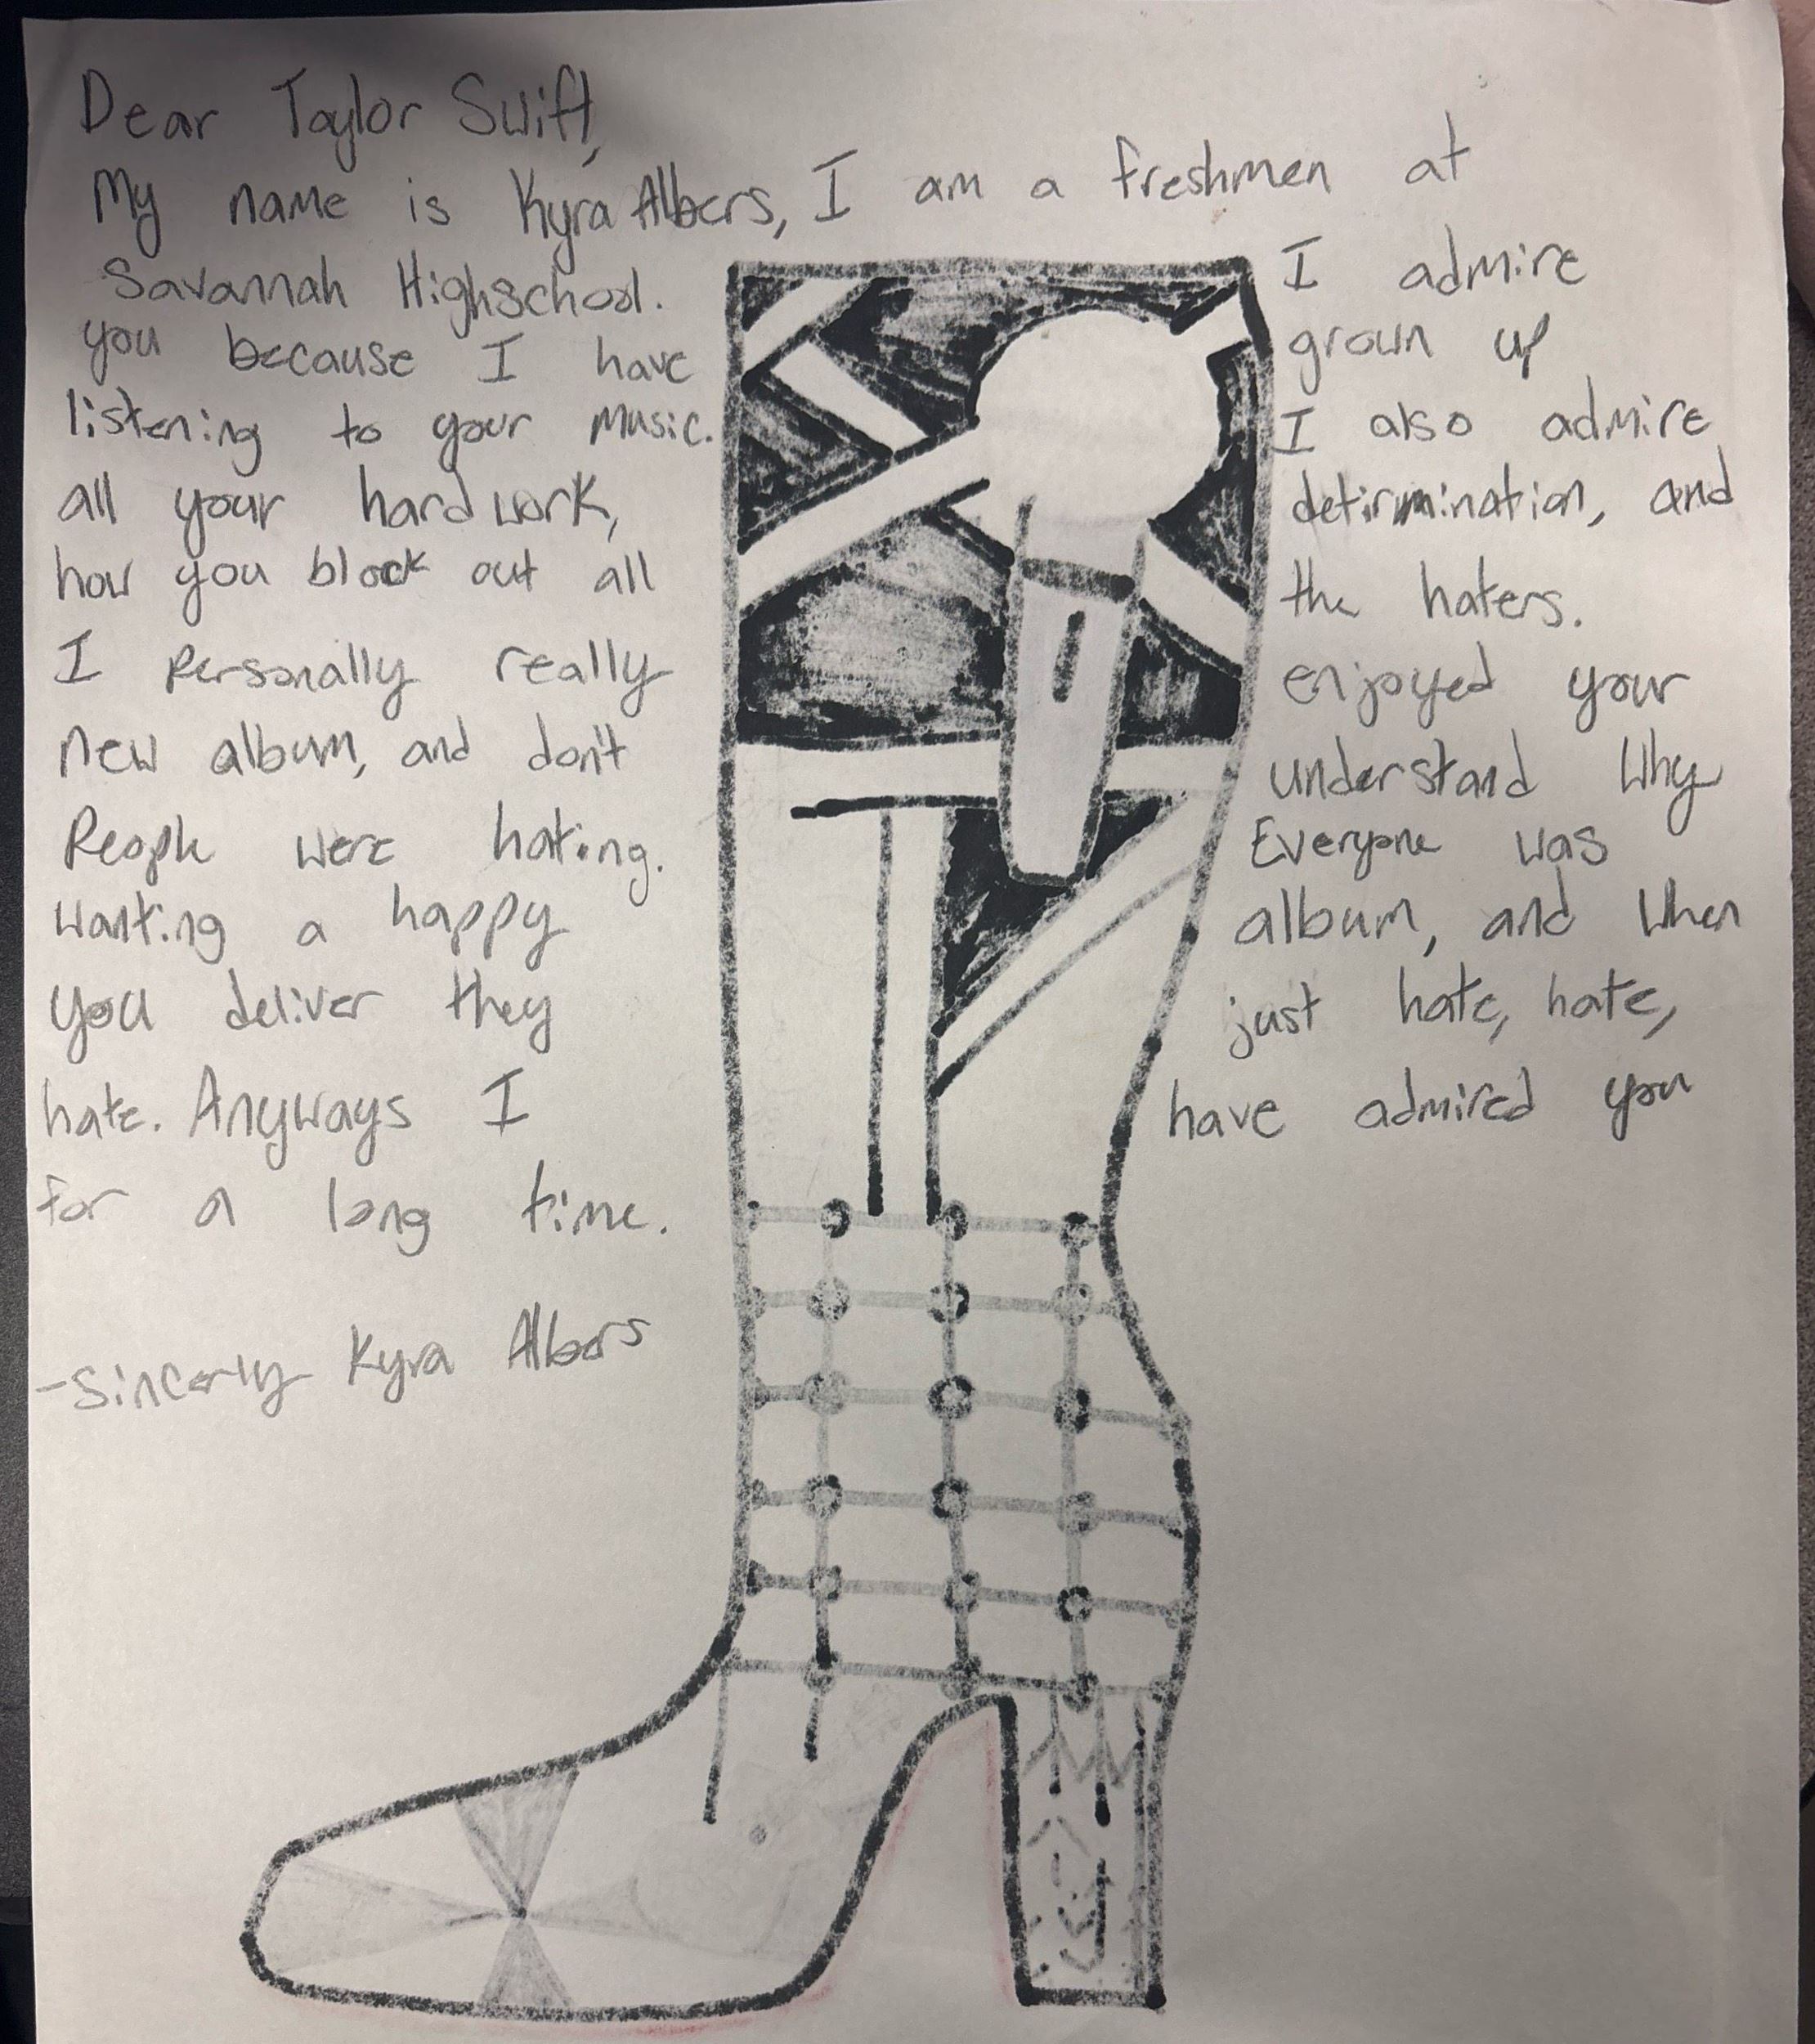 Dear Taylor Swift,
My name is Kyra Albers, I am a freshmen at
Savannah Highschool. I admire
you because I have grown up
listening to your music. I also admire
all your hard work, detirmination, and
how you block out all the haters.
I Personally really enjoyed your
new album, and don't understand why
People were hating. Everyone was
wanting a happy album, and when
you deliver they just hate, hate,
hate. Anyways I have admired you
for a long time.
-Sincerly Kyra Albers